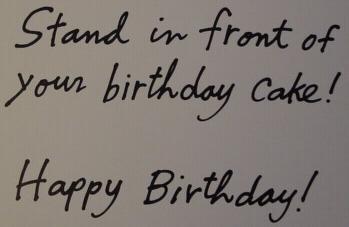 Stand in front of
your birthday cake!
Happy Birthday!